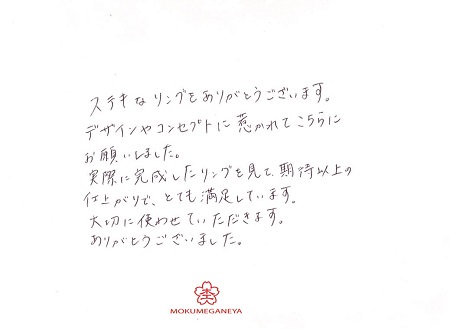 ステキなリングをありがとうございます。
デザインやコンセプトに惹かれてこちらに
お願いしました。
実際に完成したリングを見て、期待以上の
仕上がりで、とても満足しています。
大切に使わせていただきます。
ありがとうございました。
MOKUMEGANEYA